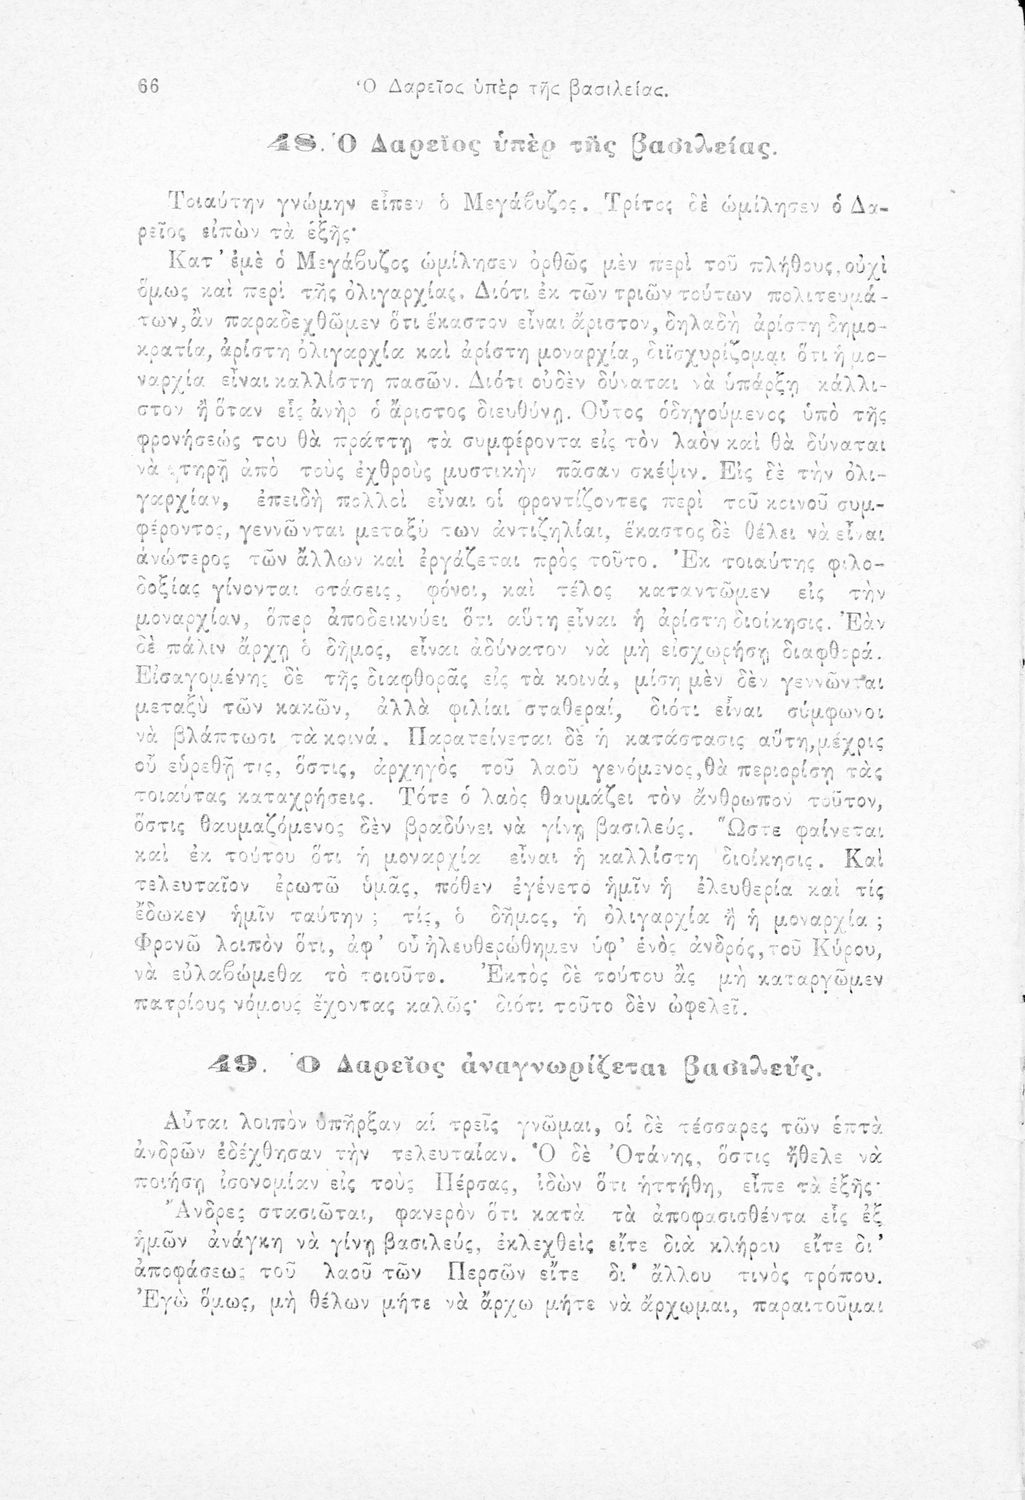 66
Ὁ Δαρεῖος ὑπὲρ τῆς βασιλείας.
48. Ὁ Δαρεῖος ὑπὲρ τῆς βασιλείας.
Τοιαύτην γνώμην εἶπεν ὁ Μεγάβυζος. Τρίτος δὲ ὡμίλησεν ὁ Δα-
ρεῖος εἰπὼν τὰ ἑξῆς·
Κατ' ἐμὲ ὁ Μεγάβυζος ὡμίλησεν ὀρθῶς μὲν περὶ τοῦ πλήθους, οὐχὶ
ὅμως καὶ περὶ τῆς ὀλιγαρχίας. Διότι ἐκ τῶν τριῶν τούτων πολιτευμά-
των, ἂν παραδεχθῶμεν ὅτι ἕκαστον εἶναι ἄριστον, δηλαδὴ ἀρίστη δημο-
κρατία, ἀρίστη ὀλιγαρχία καὶ ἀρίστη μοναρχία, διϊσχυρίζομαι ὅτι ἡ μο-
ναρχία εἶναι καλλίστη πασῶν. Διότι οὐδὲν δύναται νὰ ὑπάρξῃ κάλλι-
στον ἢ ὅταν εἷς ἀνὴρ ὁ ἄριστος διευθύνῃ. Οὗτος ὁδηγούμενος ὑπὸ τῆς
φρονήσεώς του θὰ πράττῃ τὰ συμφέροντα εἰς τὸν λαὸν καὶ θὰ δύναται
νὰ τηρῇ ἀπὸ τοὺς ἐχθροὺς μυστικὴν πᾶσαν σκέψιν. Εἰς δὲ τὴν ὀλι-
γαρχίαν, ἐπειδὴ πολλοὶ εἶναι οἱ φροντίζοντες περὶ τοῦ κοινοῦ συμ-
φέροντος, γεννῶνται μεταξύ των ἀντιζηλίαι, ἕκαστος δὲ θέλει νὰ εἶναι
ἀνώτερος τῶν ἄλλων καὶ ἐργάζεται πρὸς τοῦτο. Ἐκ τοιαύτης φιλο-
δοξίας γίνονται στάσεις, φόνοι, καὶ τέλος καταντῶμεν εἰς τὴν
μοναρχίαν, ὅπερ ἀποδεικνύει ὅτι αὕτη εἶναι ἡ ἀρίστη διοίκησις. Ἐὰν
δὲ πάλιν ἄρχῃ ὁ δῆμος, εἶναι ἀδύνατον νὰ μὴ εἰσχωρήσῃ διαφθορά.
Εἰσαγομένης δὲ τῆς διαφθορᾶς εἰς τὰ κοινά, μίση μὲν δὲν γεννῶνται
μεταξὺ τῶν κακῶν, ἀλλὰ φιλίαι σταθεραί, διότι εἶναι σύμφωνοι
νὰ βλάπτωσι τὰ κοινά. Παρατείνεται δὲ ἡ κατάστασις αὕτη, μέχρις
οὗ εὑρεθῇ τις, ὅστις, ἀρχηγὸς τοῦ λαοῦ γενόμενος, θὰ περιορίσῃ τὰς
τοιαύτας καταχρήσεις. Τότε ὁ λαὸς θαυμάζει τὸν ἄνθρωπον τοῦτον,
ὅστις θαυμαζόμενος δὲν βραδύνει νὰ γίνῃ βασιλεύς. Ὥστε φαίνεται
καὶ ἐκ τούτου ὅτι ἡ μοναρχία εἶναι ἡ καλλίστη διοίκησις. Καὶ
τελευταῖον ἐρωτῶ ὑμᾶς, πόθεν ἐγένετο ἡμῖν ἡ ἐλευθερία καὶ τίς
ἔδωκεν ἡμῖν ταύτην ; τίς, ὁ δῆμος, ἡ ὀλιγαρχία ἢ ἡ μοναρχία ;
Φρονῶ λοιπὸν ὅτι, ἀφ' οὗ ἠλευθερώθημεν ὑφ' ἑνὸς ἀνδρός, τοῦ Κύρου,
νὰ εὐλαβώμεθα τὸ τοιοῦτο. Ἐκτὸς δὲ τούτου ἂς μὴ καταργῶμεν
πατρίους νόμους ἔχοντας καλῶς· διότι τοῦτο δὲν ὠφελεῖ.
49. Ὁ Δαρεῖος ἀναγνωρίζεται βασιλεύς.
Αὗται λοιπὸν ὑπῆρξαν αἱ τρεῖς γνῶμαι, οἱ δὲ τέσσαρες τῶν ἑπτὰ
ἀνδρῶν ἐδέχθησαν τὴν τελευταίαν. Ὁ δὲ Ὀτάνης, ὅστις ἤθελε νὰ
ποιήσῃ ἰσονομίαν εἰς τοὺς Πέρσας, ἰδὼν ὅτι ἡττήθη, εἶπε τὰ ἑξῆς·
Ἄνδρες στασιῶται, φανερὸν ὅτι κατὰ τὰ ἀποφασισθέντα εἷς ἐξ
ἡμῶν ἀνάγκη νὰ γίνῃ βασιλεύς, ἐκλεχθεὶς εἴτε διὰ κλήρου εἴτε δι'
ἀποφάσεως τοῦ λαοῦ τῶν Περσῶν εἴτε δι' ἄλλου τινὸς τρόπου.
Ἐγὼ ὅμως, μὴ θέλων μήτε νὰ ἄρχω μήτε νὰ ἄρχωμαι, παραιτοῦμαι